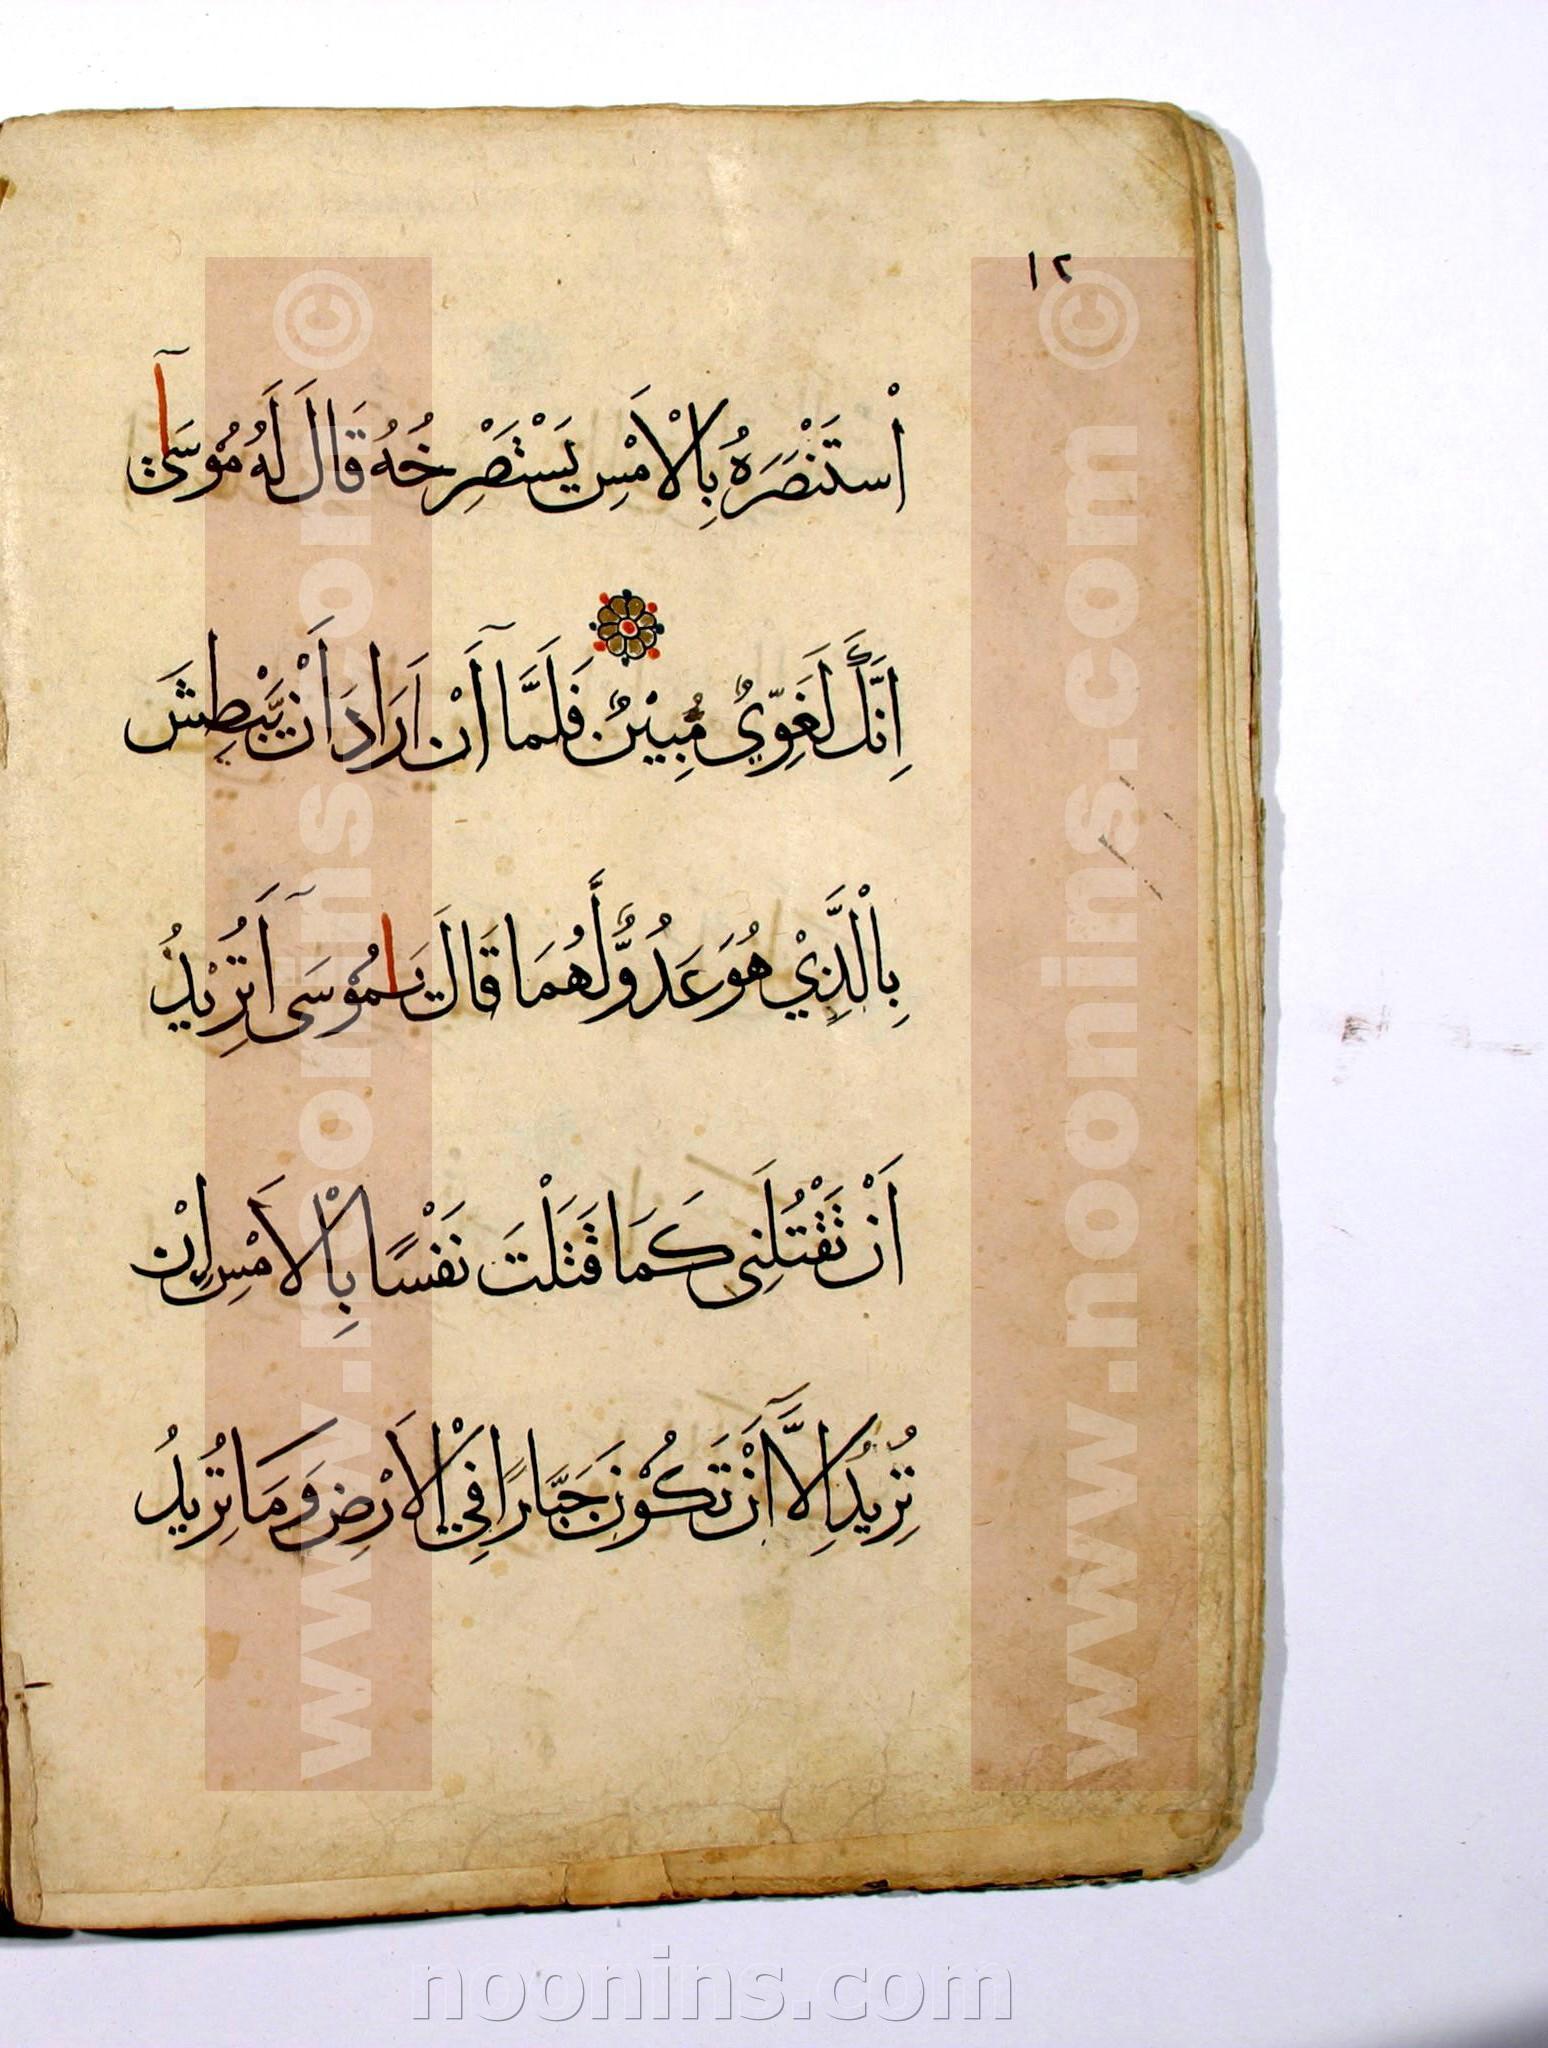 ١٢
اسْتَنْصَرَهُ بِالْاَمْسِ يَسْتَصْرِخُهُ قَالَ لَهُ مُوْسٰٓى
اِنَّكَ لَغَوِيٌّ مُبِيْنٌ فَلَمَّآ اَنْ اَرَادَ اَنْ يَّبْطِشَ
بِالَّذِيْ هُوَ عَدُوٌّ لَّهُمَا قَالَ يٰمُوْسَىٓ اَتُرِيْدُ
اَنْ تَقْتُلَنِى كَمَا قَتَلْتَ نَفْسًا بِالْاَمْسِ اِنْ
تُرِيْدُ اِلَّآ اَنْ تَكُوْنَ جَبَّارًا فِي الْاَرْضِ وَمَا تُرِيْدُ
www.noonins.com ©
www.noonins.com ©
noonins.com